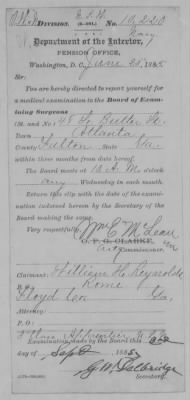 Old DIVISION. No. 10,220
Navy
Department of the Interior,
PENSION OFFICE,
Washington, D.C., June 25, 1885
You are hereby directed to report yourself for
a medical examination to the Board of Examining
Surgeons
(St. and No.) 45 So. Butler St.
Town Atlanta
County Fulton State Ga.
within three months from date hereof.
The Board meets at 10 A.M. o'clock
any Wednesday in each month.
Return this slip with the date of the examination
indorsed hereon by the Secretary of the
Board making the same.
Very respectfully,
Wm E McLean
O. P. G. CLARKE,
Act Commissioner.
Claimant: William H. Reynolds
P. O. Rome
Floyd Co. Ga.
Attorney:
P. O.:
Class Apprentice
Examination made by the Board this
day of Sept 1885.
Secretary.